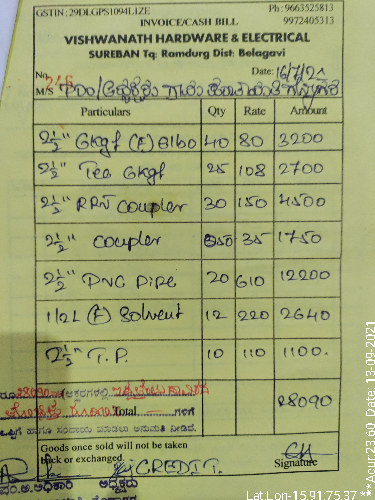 GSTIN: 29DLGPS1094L1ZE Ph: 9663525813
INVOICE/CASH BILL 9972405313
VISHWANATH HARDWARE & ELECTRICAL
SUREBAN Tq: Ramdurg Dist: Belagavi
No. Date: 16/7/21
M/S PDO/
Particulars Qty Rate Amount
2½" 6kgf (F) Elbo 40 80 3200
2½" Tee 6kgf 25 108 2700
2½" RRN Coupler 30 150 4500
2½" Coupler 50 35 1750
2½" PVC Pipe 20 610 12200
1/2L (F) Solvent 12 220 2640
2½" T.P. 10 110 1100.
ರೂ 28090
Total ಗಳಿಗೆ 28090
Goods once sold will not be taken
back or exchanged.
CREDIT. Signature
ಅಧ್ಯಕ್ಷರು
Lat:Lon-15.91:75.37**
***Acur:23.60, Date: 13-09-2021